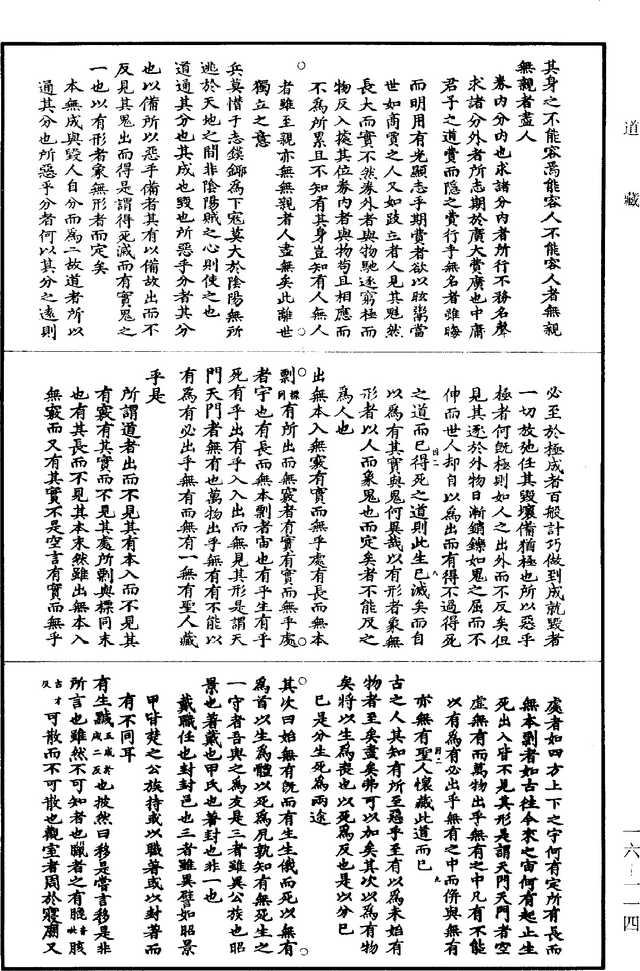 道藏
其身之不能容焉能容人不能容人者無親
無親者盡人
券內分內也求諸分內者所行不務名聲
求諸分外者所志期於廣大賣廣也中庸
君子之道賣而隱之賣行乎無名者雖晦
而明用有光顯志乎期賣者欲以眩鬻當
世如商賈之人又如跂立者人見其魁然
長大而實不然券外者與物馳逐窮極而
物反入據其位券內者與物苟且相應而
不為所累且不知有其身豈知有人無人
者雖至親亦無無親者人盡無矣此離世
獨立之意
兵莫憯于志鏌鎁為下寇莫大於陰陽無所
逃於天地之間非陰陽賊之心則使之也
道通其分也其成也毀也所惡乎分者其分
也以備所以惡乎備者其有以備故出而不
反見其鬼出而得是謂得死滅而有實鬼之
一也以有形者象無形者而定矣
本無成與毀人自分而為二故道者所以
通其分也所惡乎分者何以其分之遠則
必至於極成者百般計巧做到成就毀者
一切放弛任其毀壞備猶極也所以惡乎
極者何既極則如人之出外而不反矣但
見其逐於外物日漸銷鑠如鬼之屈而不
伸而世人却自以為出而有得不過得死
之道而已得死之道則此生已滅矣而自
以為有其實與鬼何異哉以有形者象無
形者以人而象鬼也而定矣者不能反之
為人也
出無本入無竅有實而無乎處有長而無本
剽有所出而無竅者有實有實而無乎處
者宇也有長而無本剽者宙也有乎生有乎
死有乎出有乎入入出而無見其形是謂天
門天門者無有也萬物出乎無有有不能以
有為有必出乎無有而無有一無有聖人藏
乎是
所謂道者出而不見其有本入而不見其
有竅有其實而不見其處所剽與標同末
也有其長而不見其本末然雖出無本入
無竅而又有其實不是空言有實而無乎
處者如四方上下之宇何有定所有長而
無本剽者如古往今來之宙何有起止生
死出入皆不見其形是謂天門天門者空
虛無有而萬物出乎無有之中凡有不能
以有為有必出乎無有之中而併與無有
亦無有聖人懷藏此道而已
古之人其知有所至惡乎至有以為未始有
物者至矣盡矣弗可以加矣其次以為有物
矣將以生為喪也以死為反也是以分已
已是分生死為兩途
其次曰始無有既而有生生俄而死以無有
為首以生為體以死為尻孰知有無死生之
一守者吾與之為友是三者雖異公族也昭
景也著戴也甲氏也著封也非一也
戴職任也封封邑也三者雖異譬如昭景
甲皆楚之公族特或以職著或以封著而
有不同耳
有生黬也披然曰移是嘗言移是非
所言也雖然不可知者也臘者之有膍胲
可散而不可散也觀室者周於寢廟又
一六—二一四